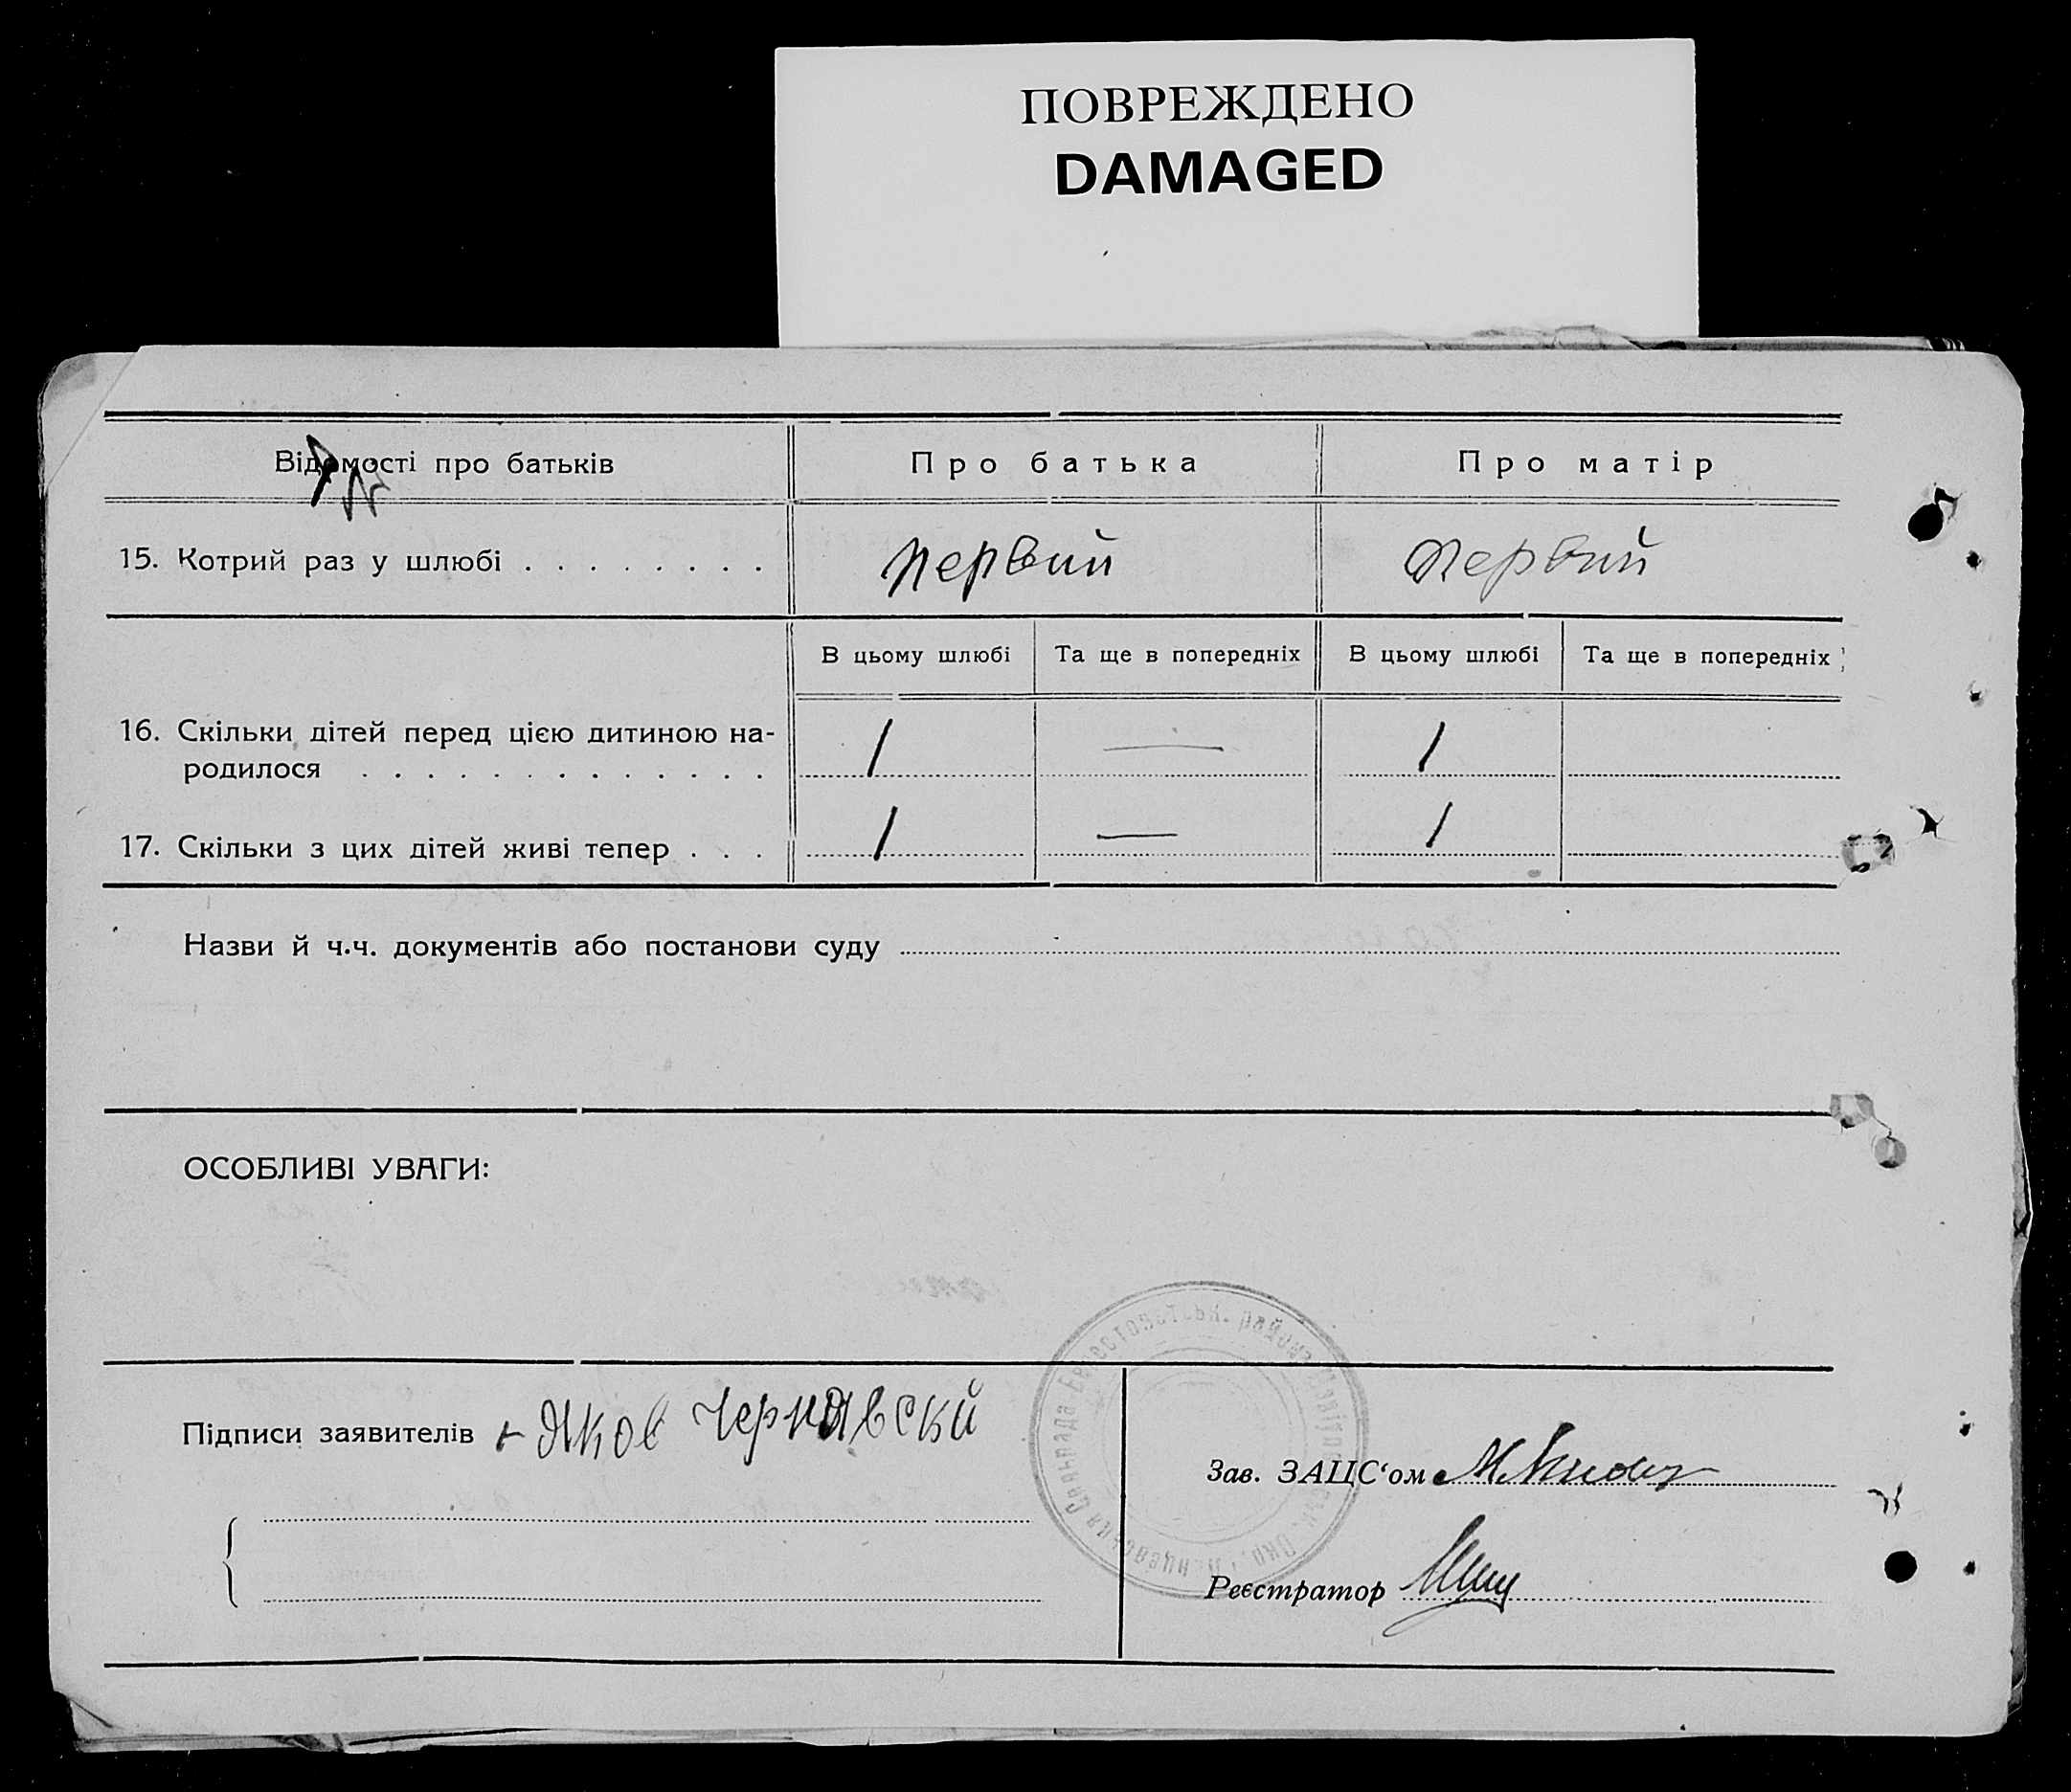 ПОВРЕЖДЕНО
DAMAGED
Відомості про батьків
Про батька
Про матір
15. Котрий раз у шлюбі . . . . . . . .
первий
первий
В цьому шлюбі
Та ще в попередніх
В цьому шлюбі
Та ще в попередніх
16. Скільки дітей перед цією дитиною на-
родилося . . . . . . . . . . . . .
1
—
1
17. Скільки з цих дітей живі тепер . . .
1
—
1
Назви й ч.ч. документів або постанови суду
ОСОБЛИВІ УВАГИ:
Підписи заявителів Яков Чернявский
Зав. ЗАЦС‘ом
Реєстратор